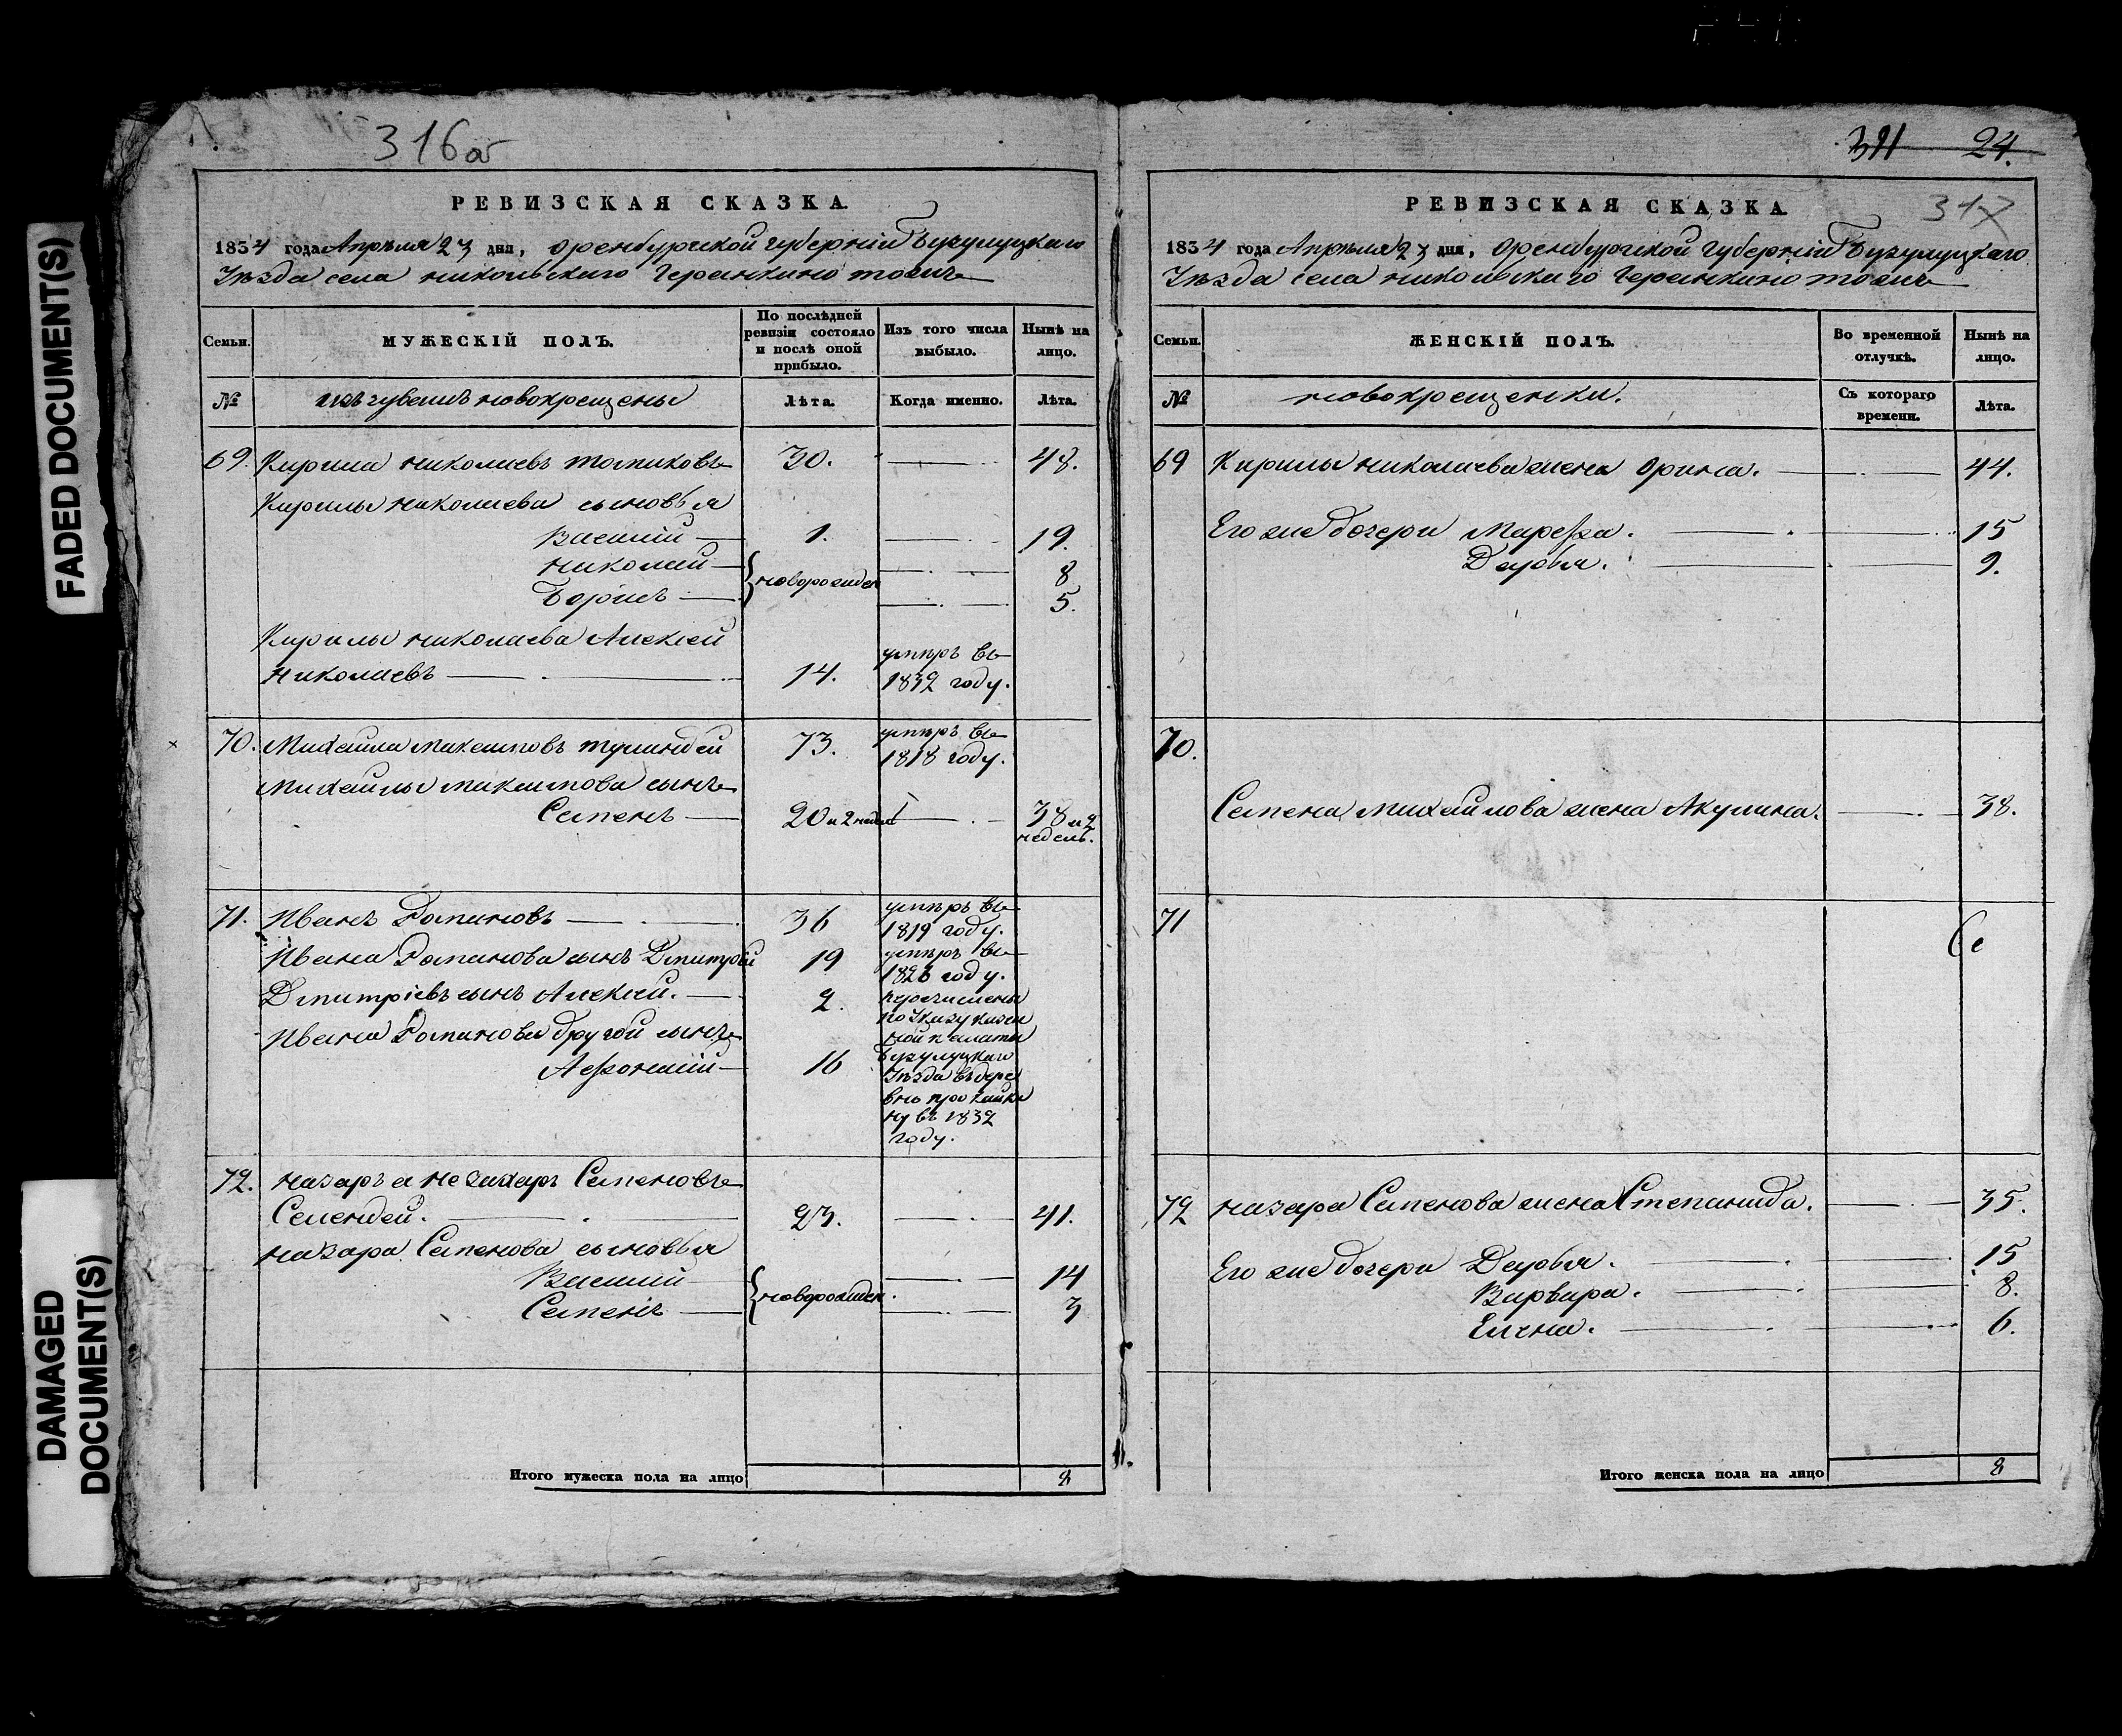 FADED DOCUMENT(S)
DAMAGED DOCUMENT(S)
316об
РЕВИЗСКАЯ СКАЗКА.
1834 года Апрѣля 23 дня, Оренбургской губерніи Бугулуцкаго
Уѣзда села никольскаго Черынкино тожъ
Семьи. МУЖЕСКІЙ ПОЛЪ. По послѣдней ревизіи состояло и послѣ оной прибыло. Изъ того числа выбыло. Нынѣ на лицо.
№ изъ чувашъ новокрещены Лѣта. Когда именно. Лѣта.
69. Кирила николаевъ 30. 48.
Кирилы николаева сыновья
Василій 1. 19.
николай } новорожден 8
Борисъ 5.
Кирилы николаева Алексей
николаевъ 14. умеръ въ 1832 году.
70. Михайла максимовъ 73. умеръ въ 1818 году.
Михайлы максимова сынъ
Семенъ 20 и 2 недел 38 и 2 недель.
71. Иванъ Романовъ 36 умеръ въ 1819 году.
Ивана Романова сынъ Дмитрей 19 умеръ въ 1828 году.
Дмитріевъ сынъ Алексей. 2. перечислены
Ивана Романова другой сынъ
Афонасій 16
по Указу казен
ной палаты
Бугулуцкаго
Уѣзда въ дере
вню
ну въ 1832
году.
72. назаръ а не захаръ Семеновъ
Селендей. 23. 41.
назара Семенова сыновья
Василій } новорожден. 14
Семенъ 3
Итого мужеска пола на лицо 8
311 24.
317
РЕВИЗСКАЯ СКАЗКА.
1834 года Апрѣля 23 дня, Оренбургской губерніи Бугулуцкаго
Уѣзда села никольскаго Черынкино тожъ
Семьи. ЖЕНСКІЙ ПОЛЪ. Во временной отлучкѣ. Нынѣ на лицо.
№ новокрещенки. Съ котораго времени. Лѣта.
69 Кирилы николаева жена Орина. 44.
Его же дочери Марефа. 15
Дарья. 9.
70.
Семена михайлова жена Акулина. 38.
71
72 назара Семенова жена Степанида. 35.
Его же дочери Дарья. 15
Варвара. 8.
Елена. 6.
Итого женска пола на лицо 8